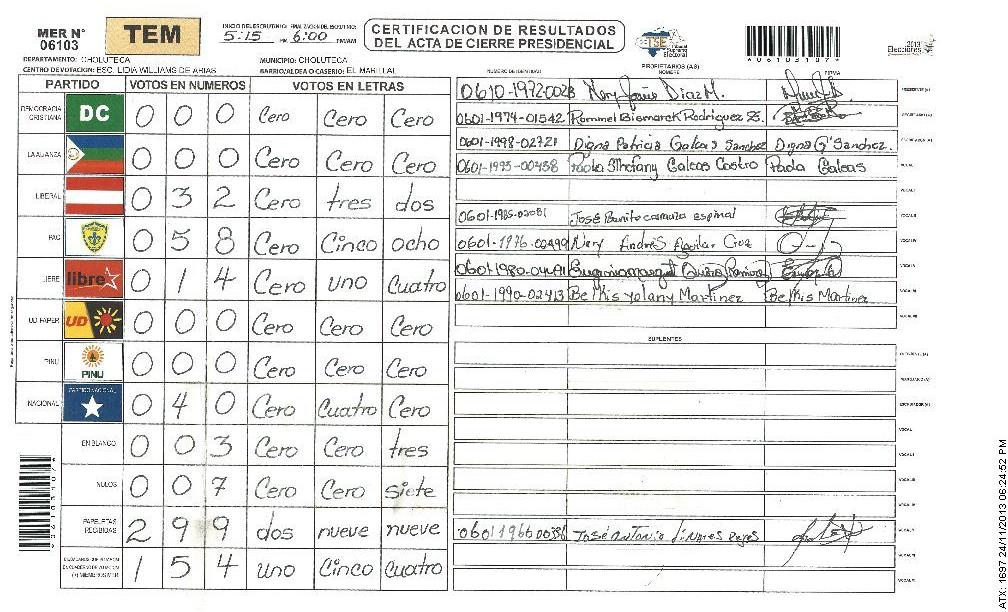 MER N° 06103
TEM
INICIO DEL ESCRUTINIO: 5:15 PM
FINALIZACION DEL ESCRUTINIO: 6:00 PM/AM
CERTIFICACION DE RESULTADOS
DEL ACTA DE CIERRE PRESIDENCIAL
TSE Tribunal Supremo Electoral
0 6 1 0 3 1 0 7
Elecciones 2013
DEPARTAMENTO: CHOLUTECA
MUNICIPIO: CHOLUTECA
CENTRO DE VOTACION: ESC. LIDIA WILLIAMS DE ARIAS
BARRIO/ALDEA O CASERIO: EL MARILLAL
PARTIDO VOTOS EN NUMEROS VOTOS EN LETRAS
DEMOCRACIA CRISTIANA DC 0 0 0 Cero Cero Cero
LA ALIANZA 0 0 0 Cero Cero Cero
LIBERAL 0 3 2 Cero tres dos
PAC 0 5 8 Cero Cinco ocho
LIBRE libre 0 1 4 Cero uno Cuatro
UD-FAPER UD 0 0 0 Cero Cero Cero
PINU PINU 0 0 0 Cero Cero Cero
NACIONAL PARTIDO NACIONAL 0 4 0 Cero Cuatro Cero
EN BLANCO 0 0 3 Cero Cero tres
NULOS 0 0 7 Cero Cero siete
PAPELETAS RECIBIDAS 2 9 9 dos nueve nueve
1 5 4 uno Cinco Cuatro
PROPIETARIOS (AS)
NUMERO DE IDENTIDAD NOMBRE FIRMA
Diaz M. PRESIDENTE (A)
0601-1974-01542 Rommel Bismarck Rodriguez Z. SECRETARIO (A)
0601-1998-02721 Digna Patricia Galcas Sanchez Digna G Sanchez. ESCRUTADOR (A)
0601-1995-00438 Galcas Castro Paola Galcas VOCAL I
VOCAL II
José Benito espinal VOCAL III
0601-1976-00499 Nery Andrés Aguilar Cruz VOCAL IV
VOCAL V
0601-1990-02413 Bethis yolany Martinez Bethis Martinez VOCAL VI
VOCAL VII
SUPLENTES
PRESIDENTE (A)
SECRETARIO (A)
ESCRUTADOR (A)
VOCAL I
VOCAL II
VOCAL III
VOCAL IV
José Antonio Reyes VOCAL V
VOCAL VI
VOCAL VII
ATX: 1697 24/11/2013 06:24:52 PM